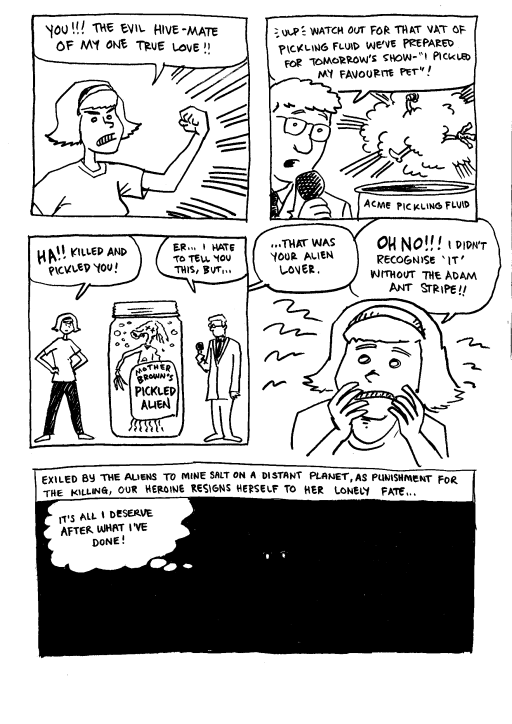 YOU!!! THE EVIL HIVE-MATE
OF MY ONE TRUE LOVE!!
ULP WATCH OUT FOR THAT VAT OF
PICKLING FLUID WE'VE PREPARED
FOR TOMORROW'S SHOW-"I PICKLED
MY FAVOURITE PET"!
ACME PICKLING FLUID
HA!! KILLED AND
PICKLED YOU!
ER... I HATE
TO TELL YOU
THIS, BUT...
MOTHER
BROWN'S
PICKLED
ALIEN
...THAT WAS
YOUR ALIEN
LOVER.
OH NO!!! I DIDN'T
RECOGNISE 'IT'
WITHOUT THE ADAM
ANT STRIPE!!
EXILED BY THE ALIENS TO MINE SALT ON A DISTANT PLANET, AS PUNISHMENT FOR
THE KILLING, OUR HEROINE RESIGNS HERSELF TO HER LONELY FATE...
IT'S ALL I DESERVE
AFTER WHAT I'VE
DONE!